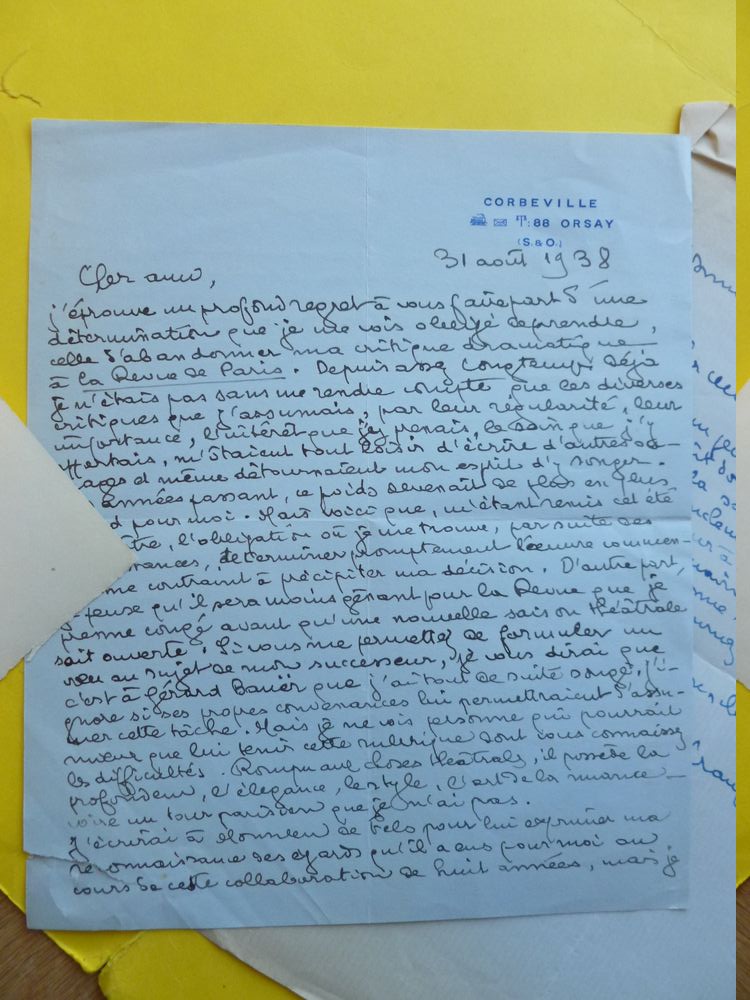 CORBEVILLE
T: 88 ORSAY
(S. & O.)
31 août 1938
Cher ami,
j'éprouve un profond regret à vous faire part d'une
détermination que je me vois obligé de prendre,
celle d'abandonner ma critique dramatique
à la Revue de Paris. Depuis assez longtemps déjà
je n'étais pas sans me rendre compte que ces diverses
critiques que j'assumais, par leur régularité, leur
importance, l'intérêt que j'y prenais, le soin que j'y
mettais, m'ôtaient tout loisir d'écrire d'autres ou-
rages et même détournaient mon esprit d'y songer.
années passant, ce poids devenait de plus en plus
d pour moi. Mais voici que, m'étant remis cet été
l'obligation où je me trouve, par suite des
rances, de terminer promptement l'œuvre commen-
me contraint à précipiter ma décision. D'autre part,
pense qu'il sera moins gênant pour la Revue que je
prenne congé avant qu'une nouvelle saison théâtrale
soit ouverte. Si vous me permettez de formuler un
vœu au sujet de mon successeur, je vous dirai que
c'est à Gérard Bauër que j'ai tout de suite songé. J'i-
gnore si ses propres convenances lui permettraient d'assu-
mer cette tâche. Mais je ne vois personne qui pourrait
mieux que lui tenir cette rubrique dont vous connaissez
les difficultés. Rompu aux choses théâtrales, il possède la
profondeur, l'élégance, le style, l'art de la nuance
voire un tour parisien que je n'ai pas.
J'écrirai à Monsieur de Fels pour lui exprimer ma
reconnaissance des égards qu'il a eus pour moi au
cours de cette collaboration de huit années, mais je